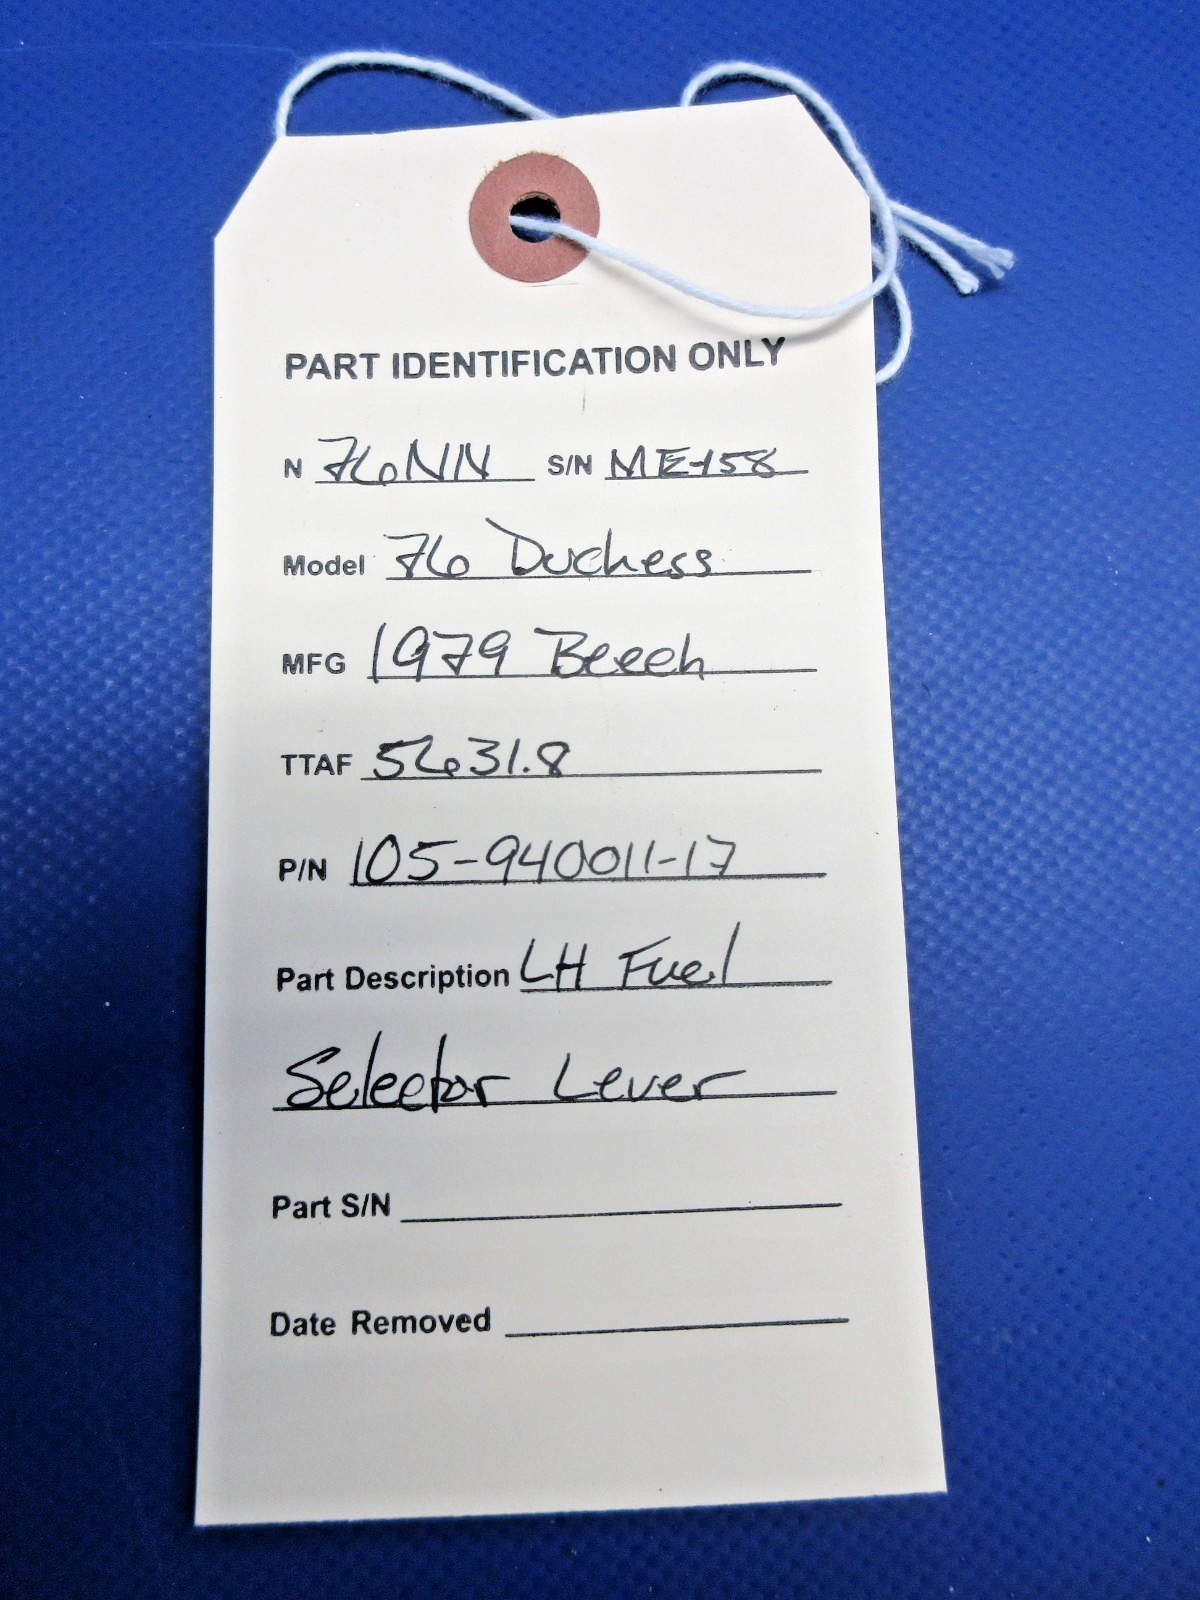 PART IDENTIFICATION ONLY
N 76NN S/N ME-158
Model 76 Duchess
MFG 1979 Beech
TTAF 5631.8
P/N 105-940011-17
Part Description LH Fuel
Selector Lever
Part S/N
Date Removed